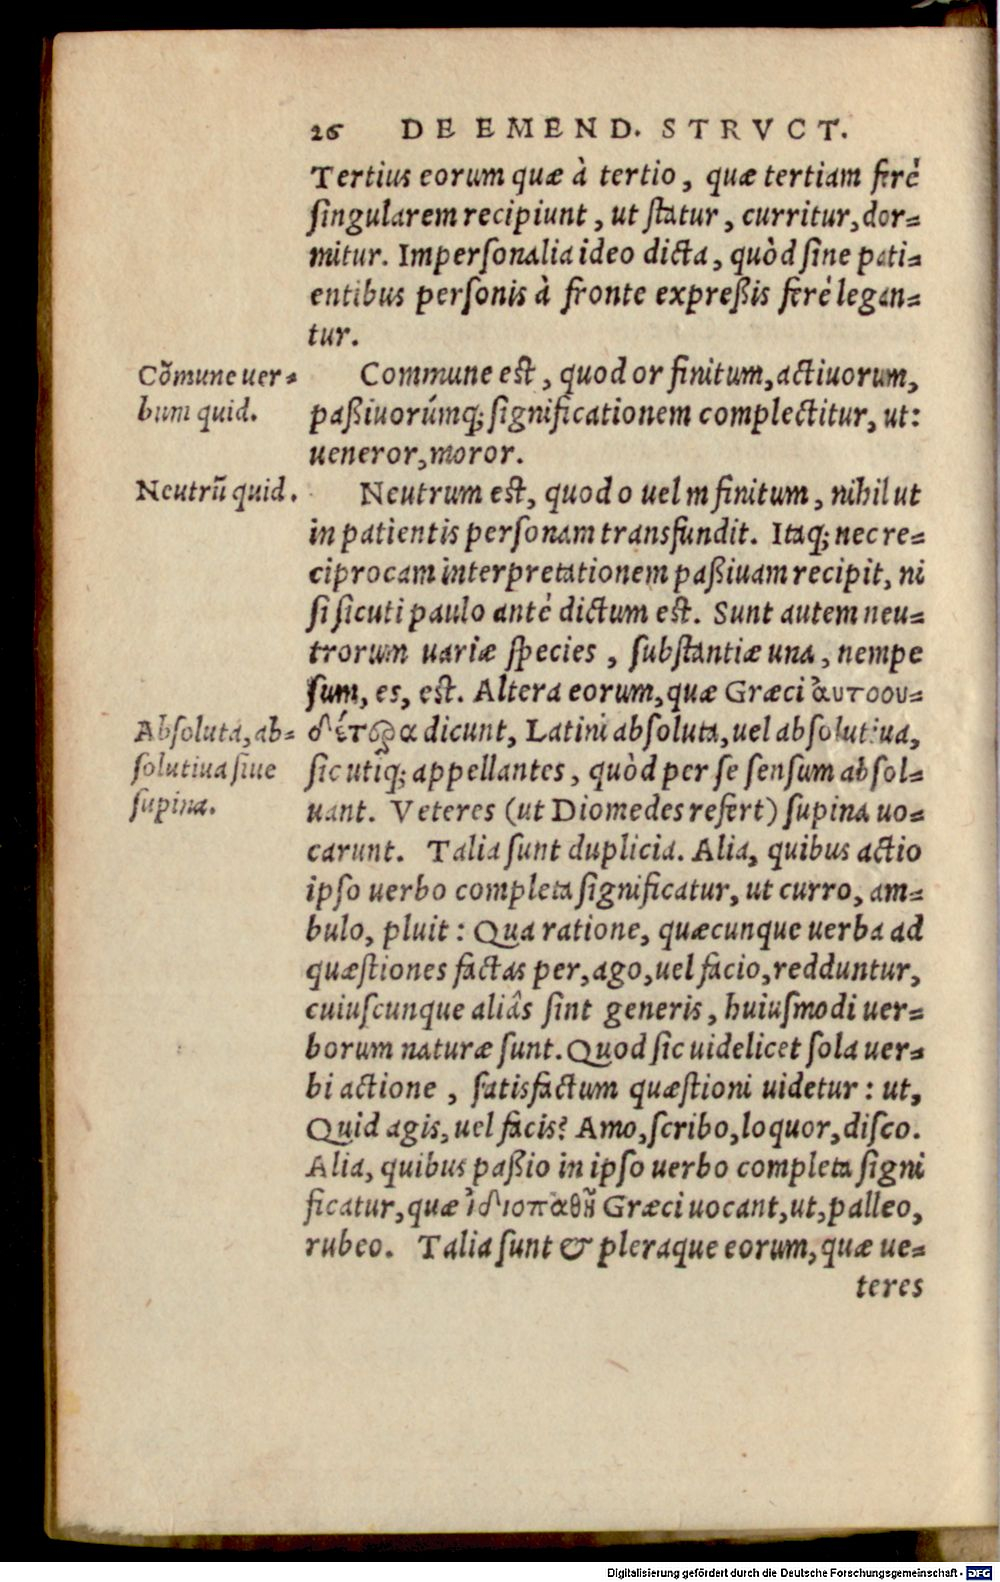 26 DE EMEND. STRVCT.
Tertius eorum quæ à tertio, quæ tertiam ferè
ſingularem recipiunt, ut ſtatur, curritur, dor-
mitur. Imperſonalia ideo dicta, quòd ſine pati-
entibus perſonis à fronte expreßis ferè legan-
tur.
Cõmune uer-
bum quid.
Commune est, quod or finitum, actiuorum,
paßiuorúmq; ſignificationem complectitur, ut:
ueneror, moror.
Neutrũ quid.
Neutrum est, quod o uel m finitum, nihil ut
in patientis perſonam transfundit. Itaq; nec re-
ciprocam interpretationem paßiuam recipit, ni
ſi ſicuti paulo antè dictum est. Sunt autem neu-
trorum uariæ ſpecies, ſubſtantiæ una, nempe
ſum, es, est. Altera eorum, quæ Græci ἀυτοου-
Abſoluta, ab-
ſolutiua ſiue
ſupina.
δέτερα dicunt, Latini abſoluta, uel abſolutiua,
ſic utiq; appellantes, quòd per ſe ſenſum abſol-
uant. Veteres (ut Diomedes refert) ſupina uo-
carunt. Talia ſunt duplicia. Alia, quibus actio
ipſo uerbo completa ſignificatur, ut curro, am-
bulo, pluit: Qua ratione, quæcunque uerba ad
quæſtiones factas per, ago, uel facio, redduntur,
cuiuſcunque aliâs ſint generis, huiuſmodi uer-
borum naturæ ſunt. Quod ſic uidelicet ſola uer-
bi actione, ſatisfactum quæſtioni uidetur: ut,
Quid agis, uel facis? Amo, ſcribo, loquor, diſco.
Alia, quibus paßio in ipſo uerbo completa ſigni
ficatur, quæ ἰδιοπαθῆ Græci uocant, ut, palleo,
rubeo. Talia ſunt & pleraque eorum, quæ ue-
teres
Digitalisierung gefördert durch die Deutsche Forschungsgemeinschaft - DFG